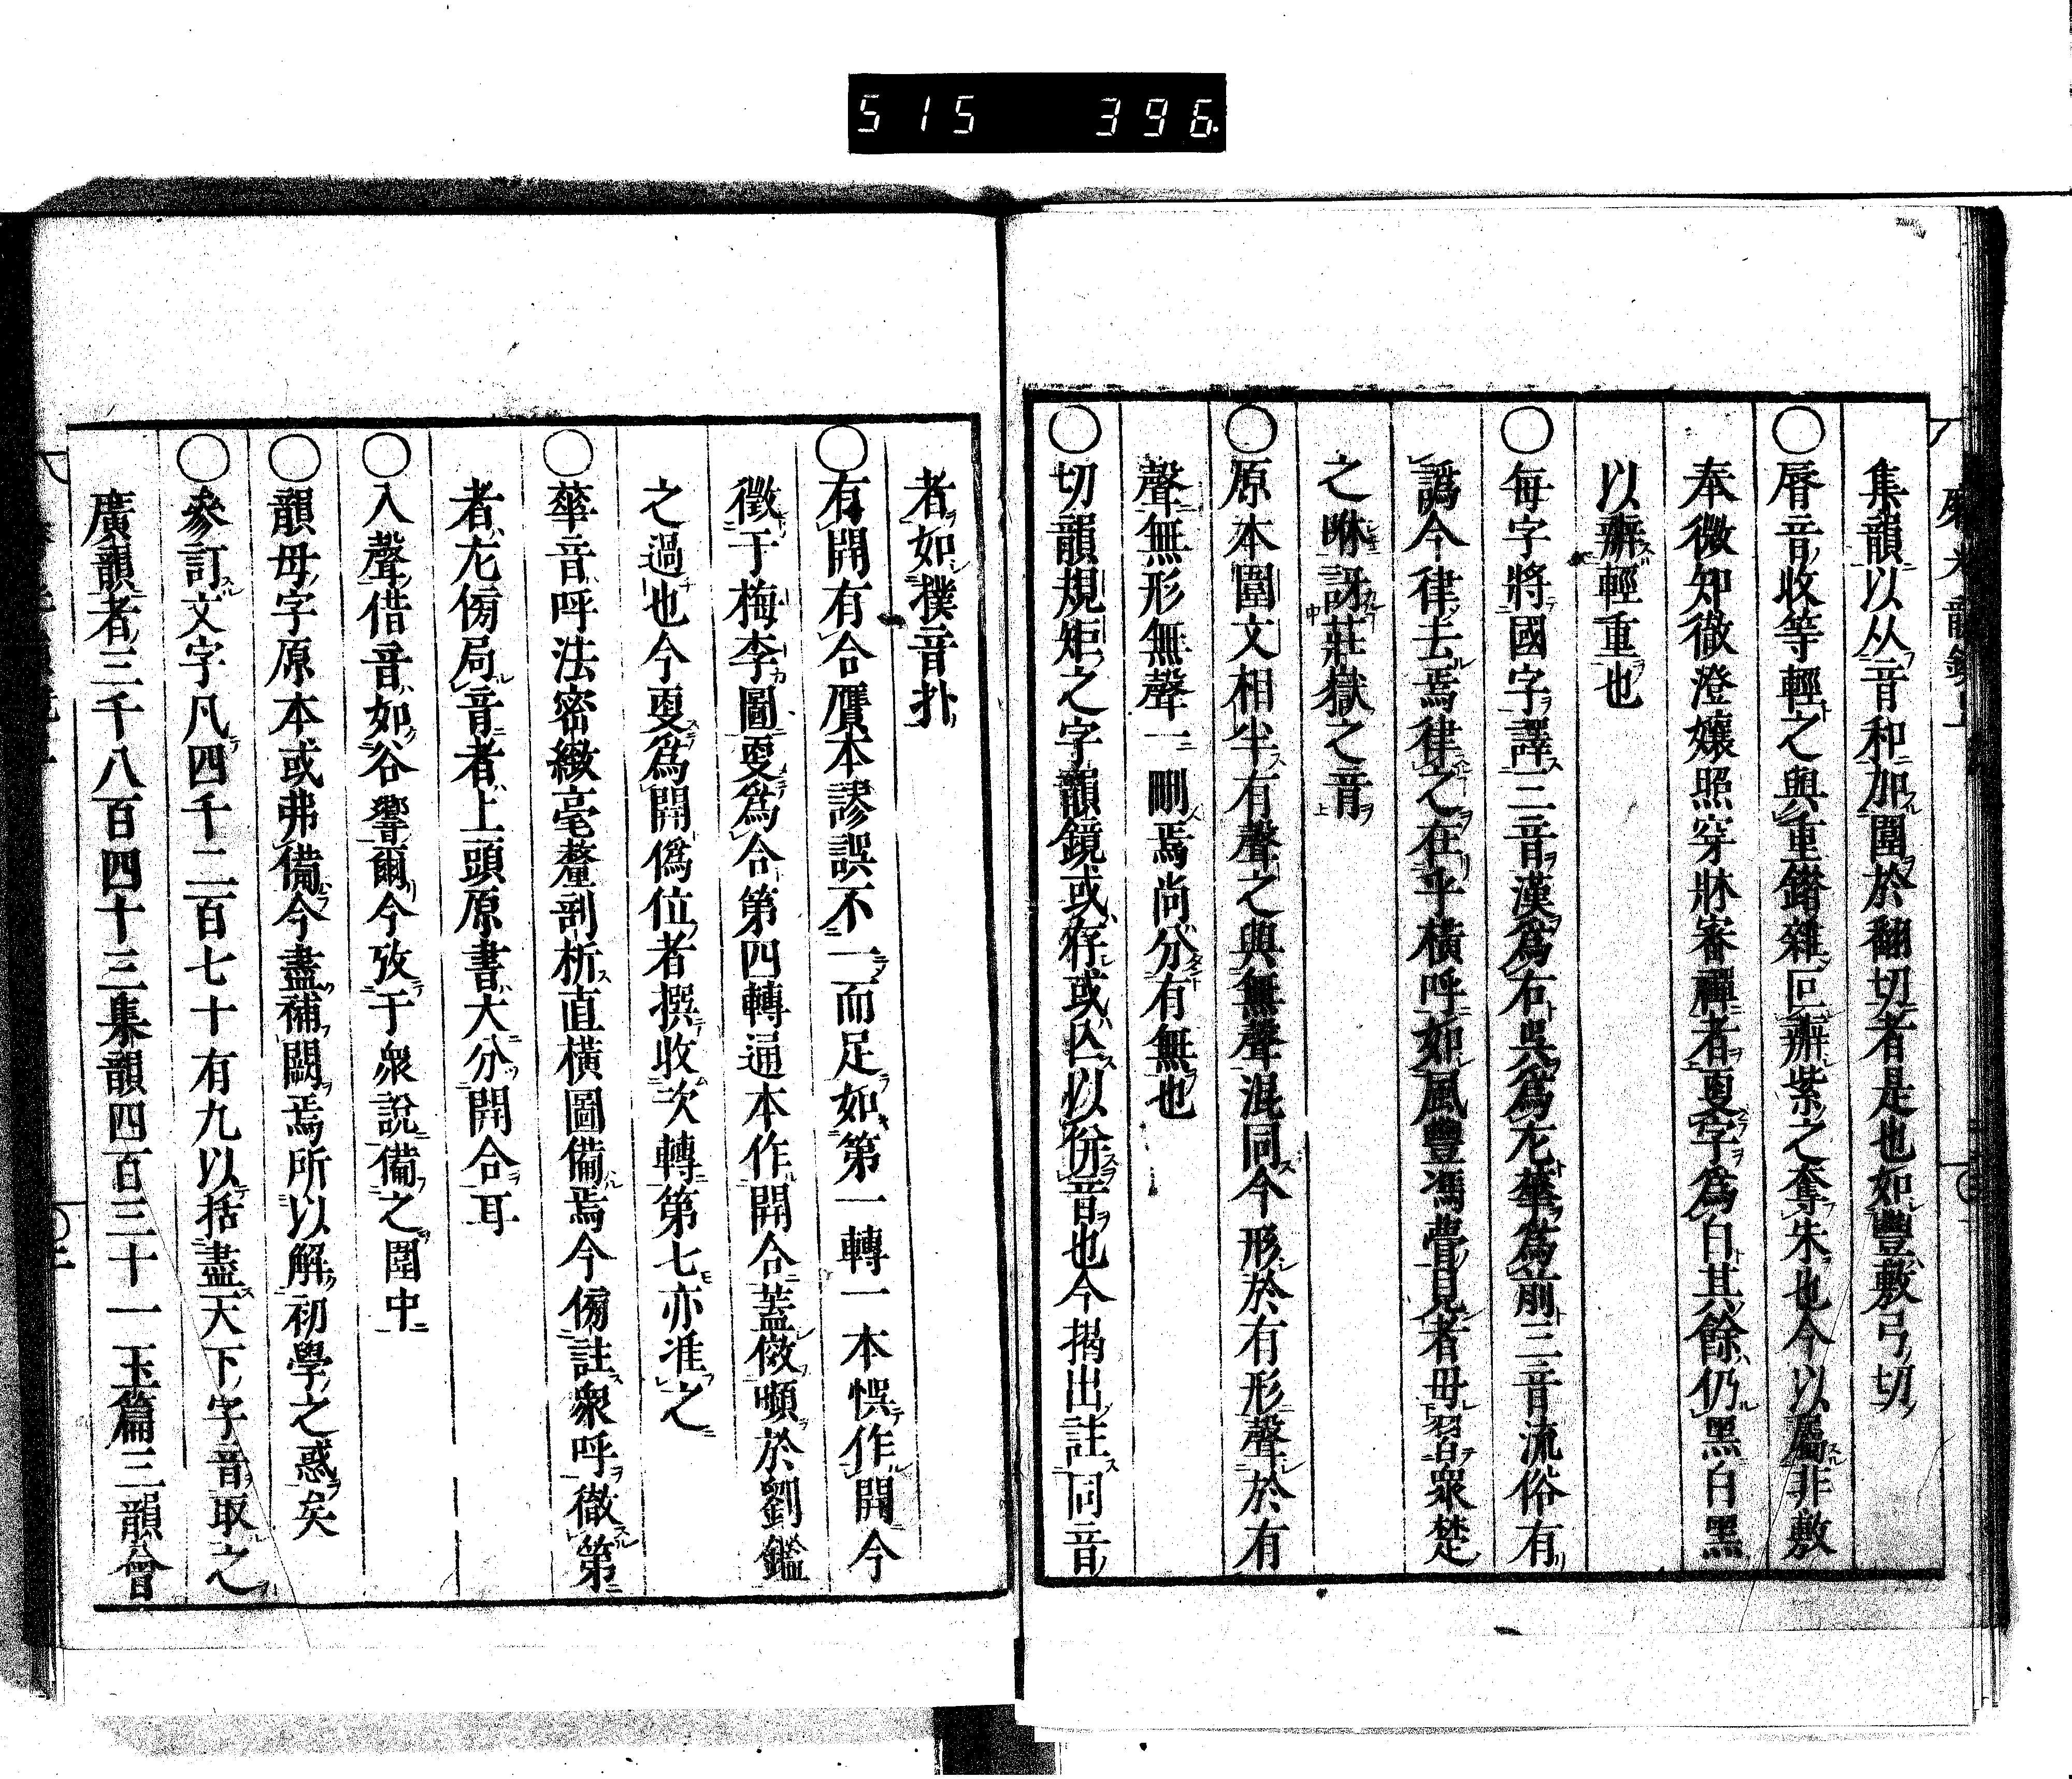 515 396
集韻以从音和加圍於翻切者是也如豐敷弓切
脣音收等輕之與重錯雜叵辦紫之奪朱也今以屬非敷
奉微知徹澄孃照穿牀審禪者更字為白其餘仍黑白黑
以辦輕重也
每字將國字譯三音漢為右吳為左華為前三音流俗有
譌今律去焉律之在乎橫呼如風豐馮瞢見者毋習衆楚
之咻訝莊嶽之音
原本圍文相半有聲之與無聲混同今形於有形聲於有
聲無形無聲一刪焉尚分有無也
切韻規矩之字韻鏡或存或亾以併音也今揭出註同音
者如撲音扑
有開有合贋本謬誤不一而足如第一轉一本悞作開今
徵于梅李圖更為合第四轉通本作開合蓋傚顰於劉鑑
之過也今更為開僞位者撰收次轉第七亦准之
華音呼法密緻毫釐剖析直橫圖備焉今傍註衆呼徹第
者左傍局音者上頭原書大分開合耳
入聲借音如谷響爾今攷于衆說備之圍中
韻母字原本或弗備今盡補闕焉所以解初學之惑矣
參訂文字凡四千二百七十有九以括盡天下字音取之
廣韻者三千八百四十三集韻四百三十一玉篇三韻會